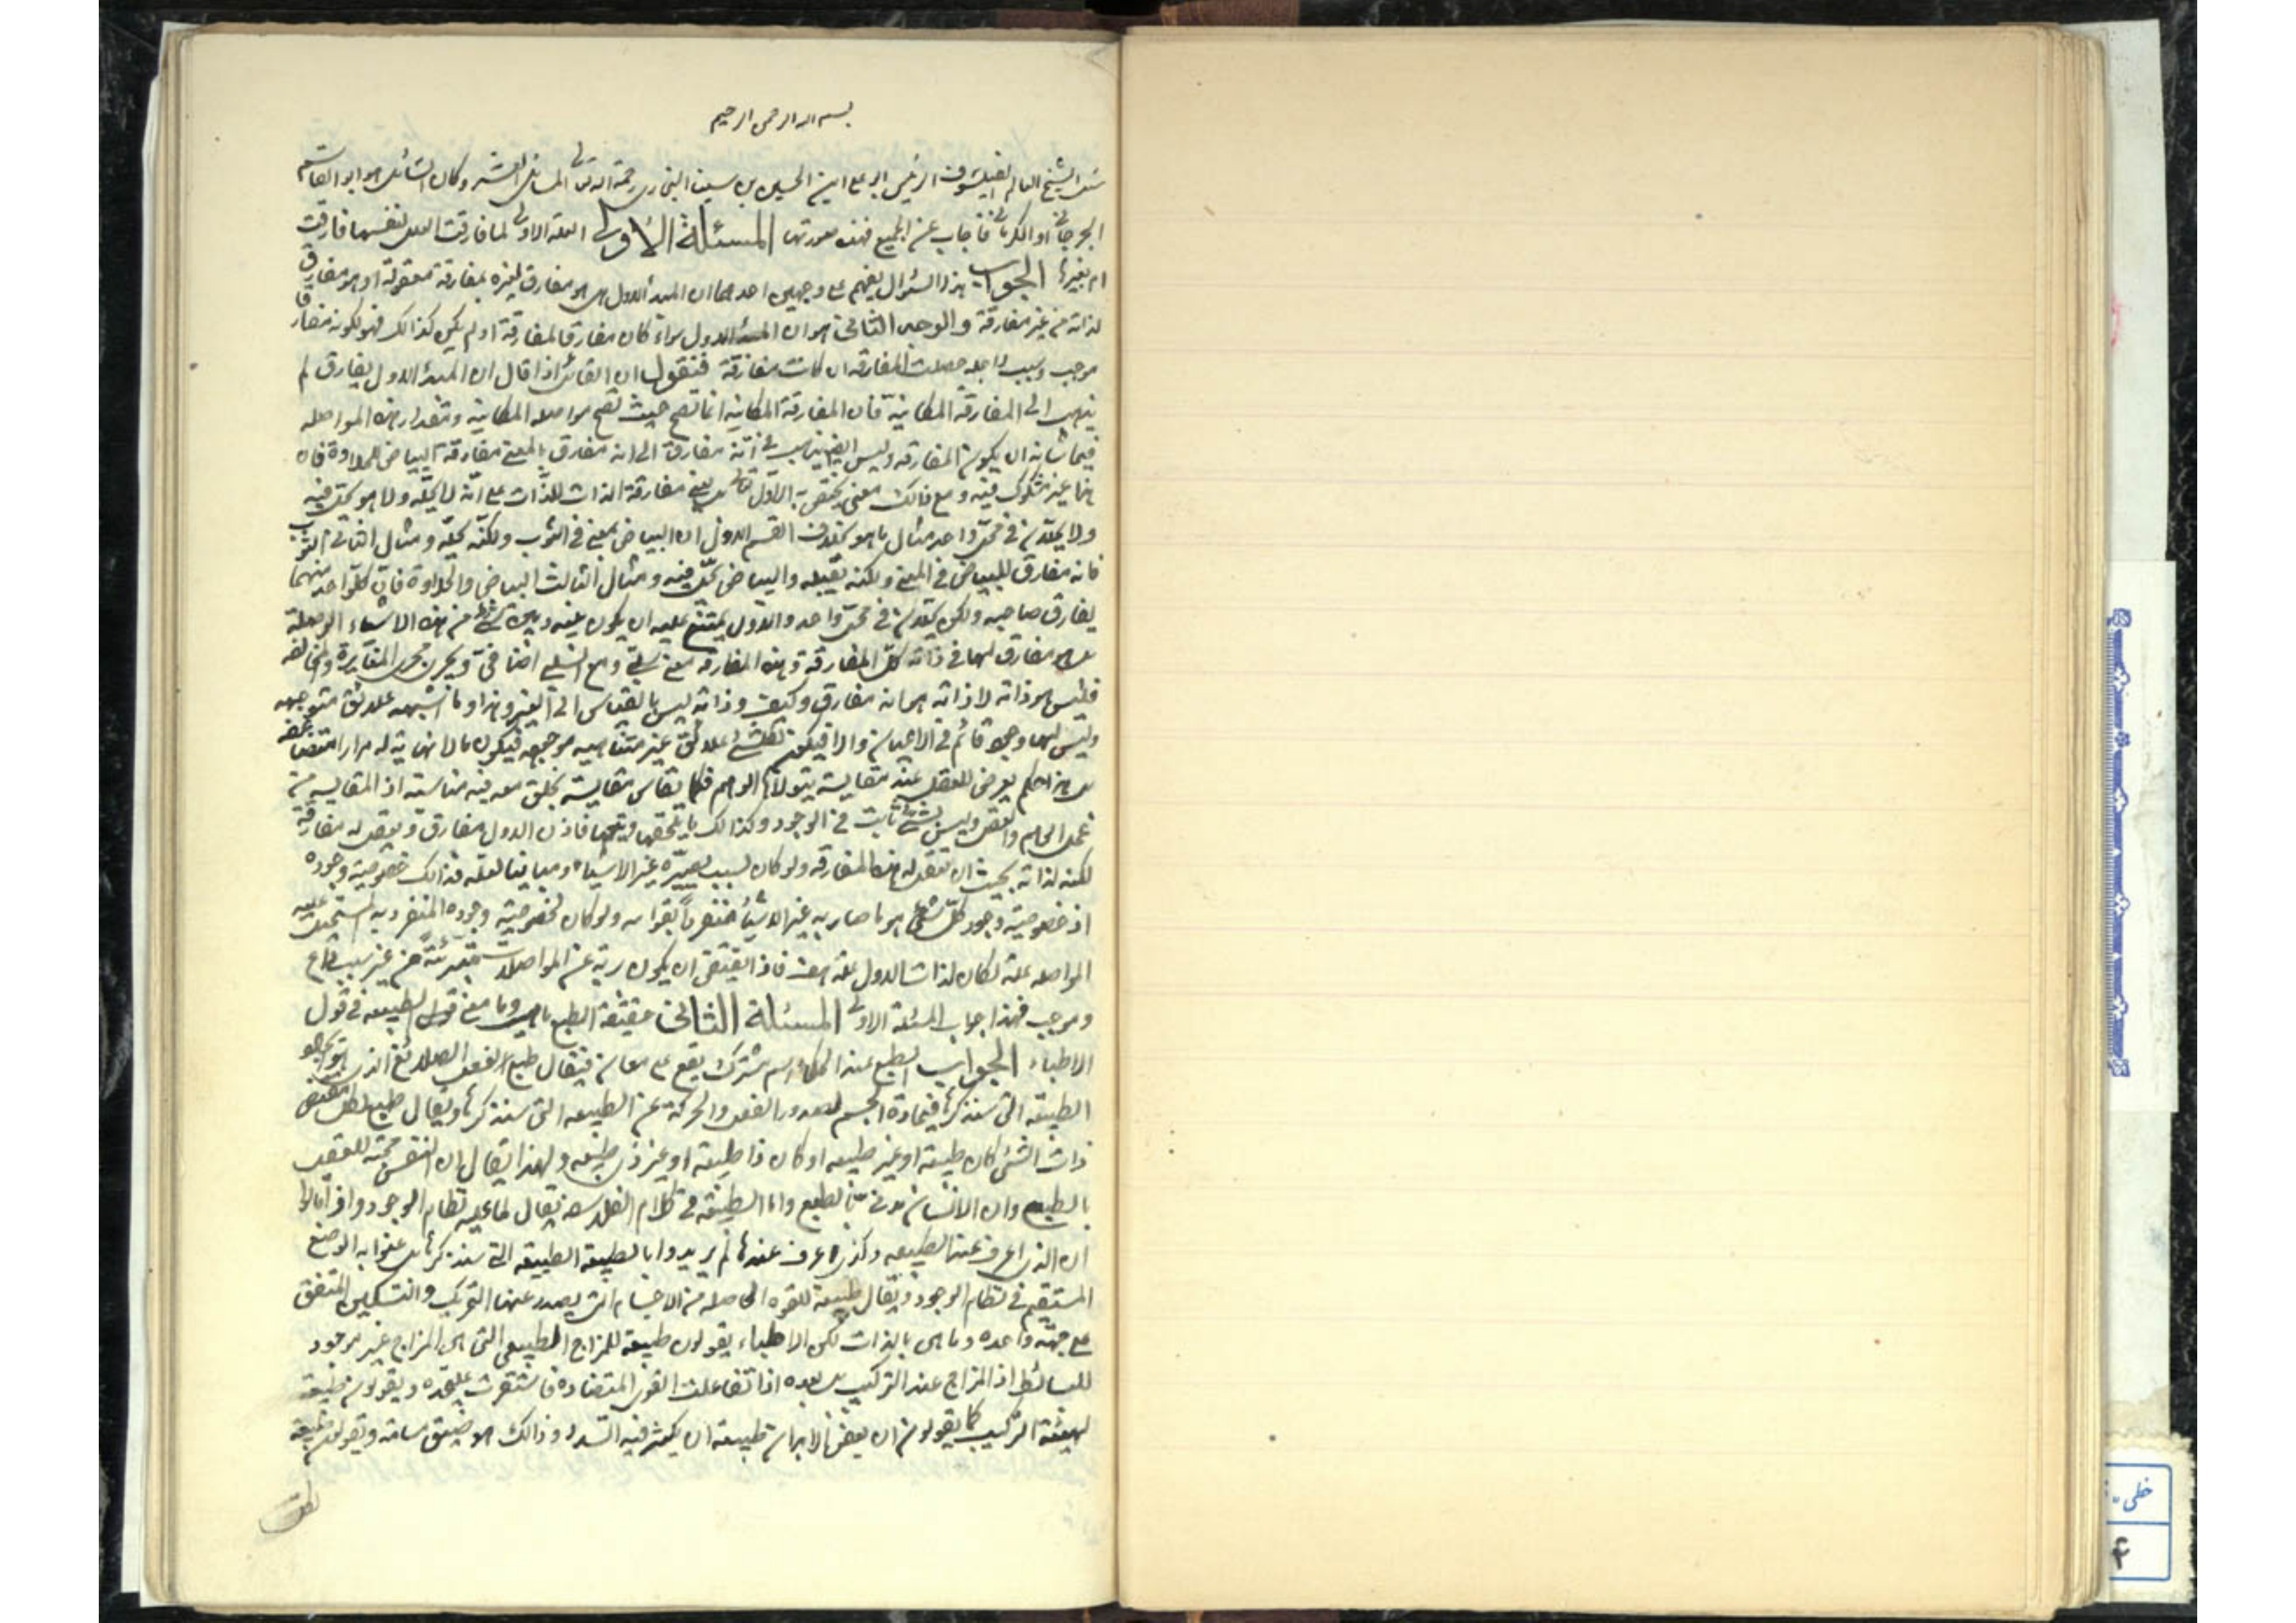 بسم الله الرحمن الرحيم
سئل الشيخ العالم الفيلسوف الرئيس ابو على ابن الحسين بن سينا البخارى رحمة الله تعالى المسائل العشر وكان السائل هو ابو القاسم
الجرجانى او الكرمانى فاجاب عن الجميع فهذه صورتها المسئلة الاولى العلة الاولى لما فارقت العلل لنفسها فارقت
ام بغيرها الجواب هذا السؤال يفهم على وجهين احدهما ان المبدأ الاول هل هو مفارق لغيره بمفارقة معقولة او هو مفارق
لذاته من غير مفارقة والوجه الثانى هو ان المبدأ الاول سواء كان مفارقا لمفارقة او لم يكن كذالك فهو لكونه مفارقا
موجب وسبب لاجله حصلت المفارقة ان كانت مفارقة فنقول ان القائل اذا قال ان المبدأ الاول يفارق لم
يذهب الى المفارقة المكانية فان المفارقة المكانية انما تصح حيث تصح مواصلة المكانية وتقدار هذه المواصله
فيما شانه ان يكون المفارقه وليس ايضا يذهب فى انه مفارق الى انه مفارق بالمعنى مفارقة البياض للحلاوة فان
هذا غير مشكوك فيه ومع ذالك معنى يختص به الاول تعالى بل يعنى مفارقة الذات للذات على انه لا يحله ولا هو يحل فيه
ولا يحلان فى محل واحد مثال ما هو بخلاف القسم الاول ان البياض بمعنى فى الثوب ولكنه يحله ومثال الثانى الثوب
فانه مفارق للبياض فى المعنى ولكنه يقبله والبياض يحل فيه ومثال الثالث البياض والحلاوة فان كل واحد منهما
يفارق صاحبه ولكن يحلان فى محل واحد والاول يمتنع عليه ان يكون بينه وبين شئ من هذه الاشياء الوصلة
بل هو مفارق لها فى ذاته كل المفارقة وهذه المفارقة معنى سلبى ومع السلب اضافى ويجرى مجرى المغايرة والمخالفه
فليس هو ذاته لا ذاته هى انه مفارق وكيف وذاته ليس بالقياس الى الغير وهذا وما اشبهه علائق متوجهه
وليس لها وجود قائم فى الاعيان والا فيكون لكل شئ علائق غير متناهيه موجوده فيكون مالا نهاية له مرارا متضاعفه
بل هذا حكم يعرض للعقل عند مقايسة يتولاها الوهم فكلما تقاس مقايسة يخلق معه فيه مناسبته اذ المقايسه من
عمل الوهم والعقل وليس بشئ ثابت فى الوجود وكذالك ما يلحقها ويتبعها فاذن الاول مفارق ويعقل له مفارقة
لكنه لذاته بحيث ان تعقل له هذه المفارقة ولو كان لسبب يصيره غير الاشياء ومباينا لعله فذالك خصوصية وجوده
اذ خصوصية وجود كل شئ هو ما صار به غير الاشياء منفردا بقوامه ولو كان لخصوصية وجوده المنفرد به المستحيل عليه
المواصله علة لكان لذات الاول علة هف فاذا يقتضى ان يكون ربه عن المواصلات متبرئة من غير سبب داع
وموجب فهذا جواب المسئلة الاولى المسئلة الثانى حقيقة الطبع ما هى وما معنى قول الطبيعه فى قول
الاطباء الجواب الطبع عند الحكماء اسم مشترك يقع على معان فيقال طبع للفعل الصادر عن الذى هو
الطبيعة التى سنذكرها فى مادة الجسم لصدور الفعل والحركة عن الطبيعه التى سنذكرها ويقال طبع لكل مقتضى
ذات الشئ كان طبيعة او غير طبيعه او كان ذا طبيعة او غير ذى طبيعه ولهذا يقال ان النفس محبة للعقل
بالطبع وان الانسان مدنى بالطبع واما الطبيعة فى كلام الفلاسفه يقال لما عليه نظام الوجود واذا قالوا
ان الذى اعرف عند الطبيعه وكذى اعرف عندنا لم يريدوا بالطبيعة الطبيعه التى سنذكرها بل عنوا به الوضع
المستقيم فى نظام الوجود ويقال طبيعة للقوه الحاصله من الاجسام التى يصدر عنها التحريك والتسكين المتفق
على جهة واحده وما هى بالذات لكن الاطباء يقولون طبيعة للمزاج الطبيعى التى هى المزاج غير موجود
للبسائط اذ المزاج عند التركيب بل بعده اذا تفاعلت القوى المتضاده فاستقرت على حده ويقولون طبيعة
لهيئة التركيب كما يقولون ان بعض الابدان طبيعته ان يكثر فيه السدد وذالك هو ضيق مسامه ويقولون طبيعة
خطى
۴